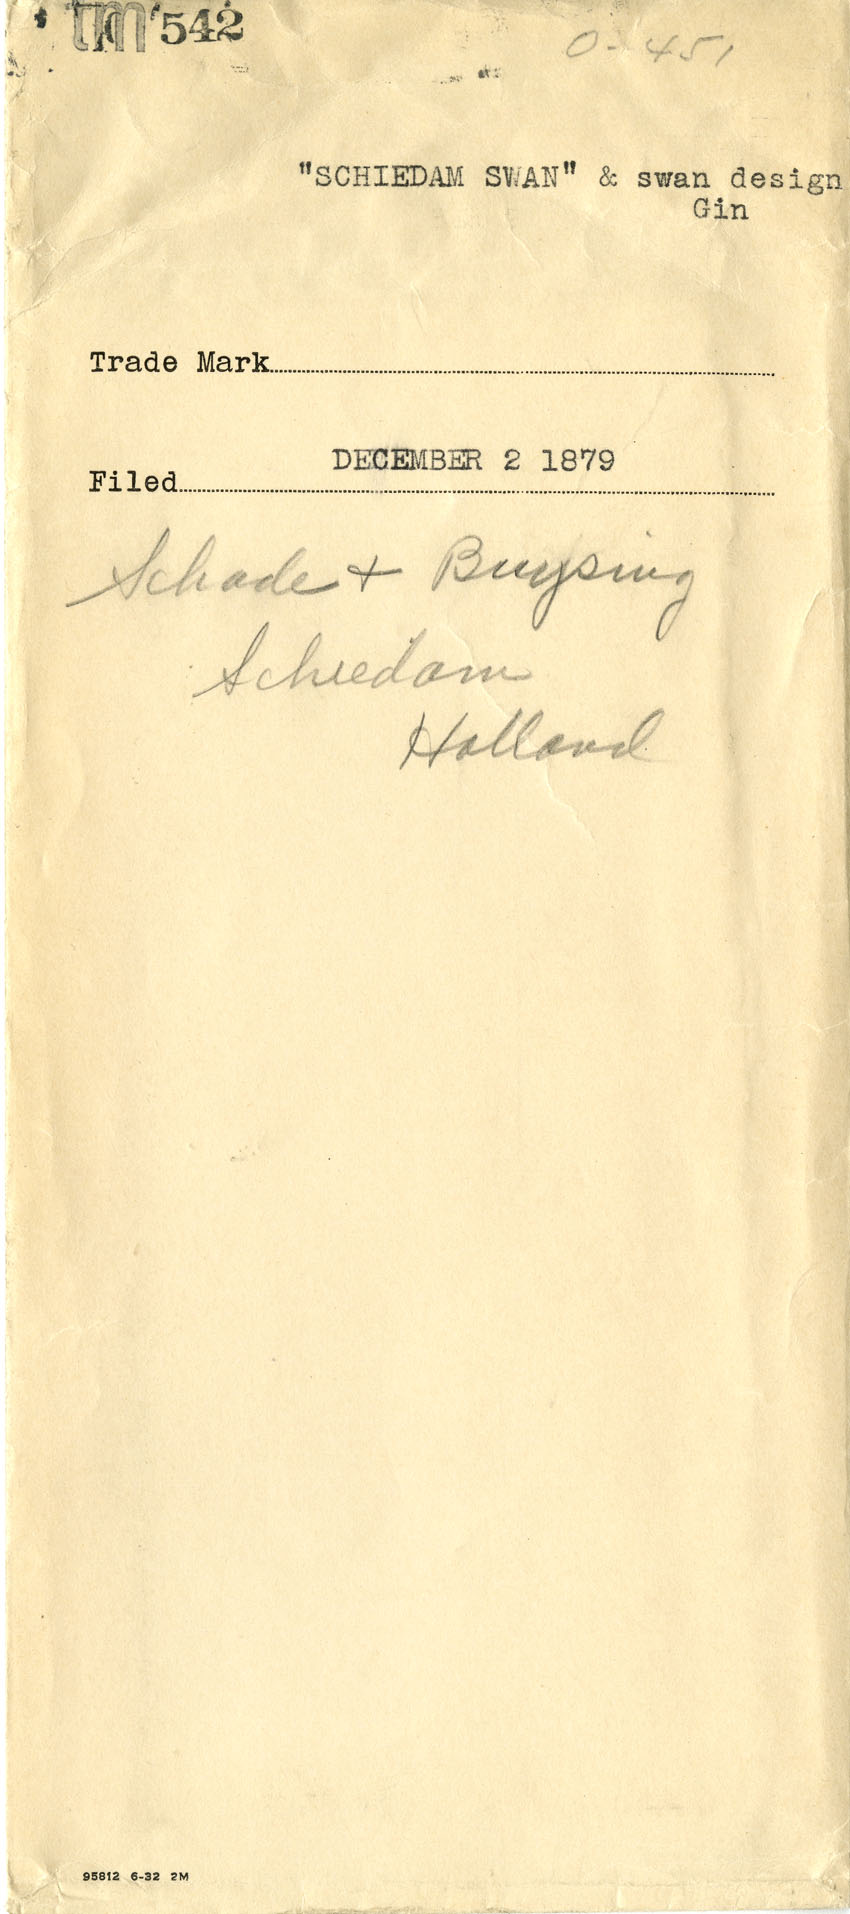 tm 542
0-451
"SCHIEDAM SWAN" & swan design
Gin
Trade Mark
DECEMBER 2 1879
Filed
Schade + Buysing
Schiedam
Holland
95812 6-32 2M